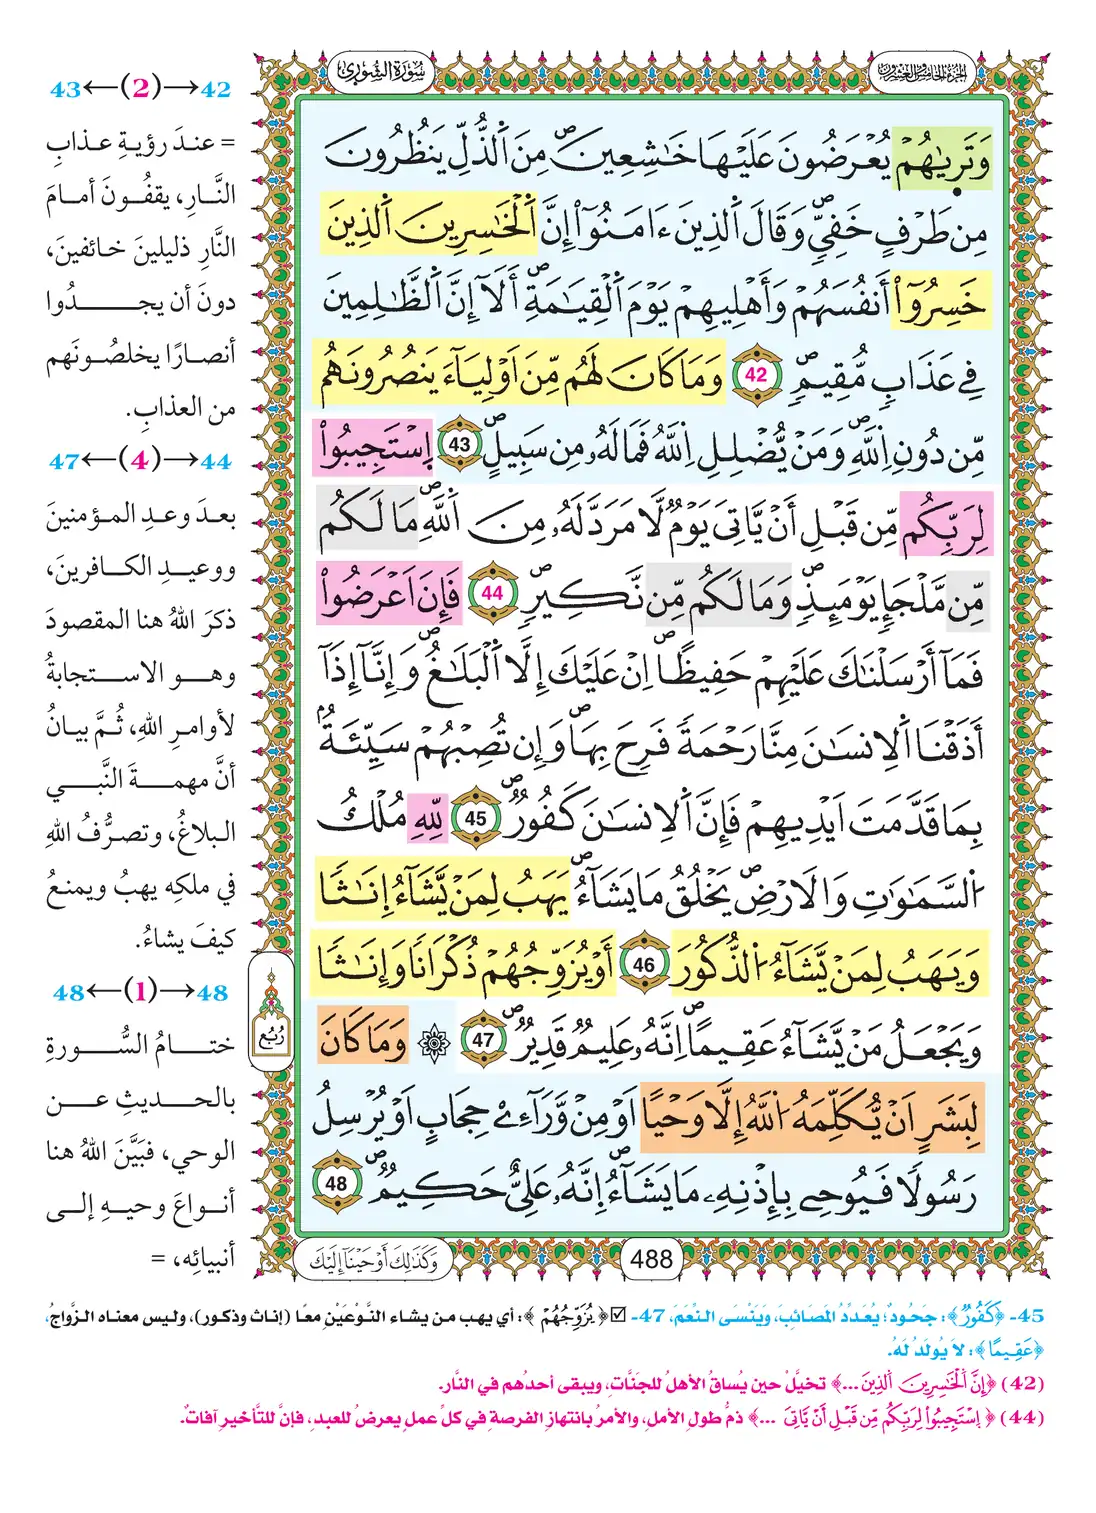 سُورَةُ الشُّورَىٰ
الجزء الخامس والعشرون
وَتَرٜىٰهُمْ يُعْرَضُونَ عَلَيْهَا خَٰشِعِينَ مِنَ اَ۬لذُّلِّ يَنظُرُونَ
مِن طَرْفٍ خَفِيّٖۖ وَقَالَ اَ۬لذِينَ ءَامَنُوٓاْ إِنَّ اَ۬لْخَٰسِرِينَ اَ۬لذِينَ
خَسِرُوٓاْ أَنفُسَهُمْ وَأَهْلِيهِمْ يَوْمَ اَ۬لْقِيَٰمَةِۖ أَلَآ إِنَّ اَ۬لظَّٰلِمِينَ
فِے عَذَابٖ مُّقِيمٖۖ 42 وَمَا كَانَ لَهُم مِّنَ اَوْلِيَآءَ يَنصُرُونَهُم
مِّن دُونِ اِ۬للَّهِۖ وَمَنْ يُّضْلِلِ اِ۬للَّهُ فَمَا لَهُۥ مِن سَبِيلٍۖ 43 اِ۪سْتَجِيبُواْ
لِرَبِّكُم مِّن قَبْلِ أَنْ يَّاتِىَ يَوْمٞ لَّا مَرَدَّ لَهُۥ مِنَ اَ۬للَّهِۖ مَا لَكُم
مِّن مَّلْجَإٖ يَوْمَئِذٖۖ وَمَا لَكُم مِّن نَّكِيرٖۖ 44 فَإِنَ اَعْرَضُواْ
فَمَآ أَرْسَلْنَٰكَ عَلَيْهِمْ حَفِيظًاۖ اِنْ عَلَيْكَ إِلَّا اَ۬لْبَلَٰغُۖ وَإِنَّآ إِذَآ
أَذَقْنَا اَ۬لِانسَٰنَ مِنَّا رَحْمَةٗ فَرِحَ بِهَاۖ وَإِن تُصِبْهُمْ سَيِّئَةُۢ
بِمَا قَدَّمَتَ اَيْدِيهِمْ فَإِنَّ اَ۬لِانسَٰنَ كَفُورٞۖ 45 لِّلهِ مُلْكُ
اُ۬لسَّمَٰوَٰتِ وَالَارْضِۖ يَخْلُقُ مَا يَشَآءُۖ يَهَبُ لِمَنْ يَّشَآءُ إِنَٰثٗا
وَيَهَبُ لِمَنْ يَّشَآءُ اُ۬لذُّكُورَ 46 أَوْ يُزَوِّجُهُمْ ذُكْرَانٗا وَإِنَٰثٗا
وَيَجْعَلُ مَنْ يَّشَآءُ عَقِيمًاۖ اِنَّهُۥ عَلِيمٞ قَدِيرٞۖ 47 ۞ وَمَا كَانَ
لِبَشَرٍ اَنْ يُّكَلِّمَهُ اُ۬للَّهُ إِلَّا وَحْيًا اَوْ مِنْ وَّرَآءِےْ حِجَابٍ اَوْ يُرْسِلُ
رَسُولٗا فَيُوحِے بِإِذْنِهِۦ مَا يَشَآءُۖ اِنَّهُۥ عَلِىٌّ حَكِيمٞۖ 48
رُبُع
488
وَكَذَٰلِكَ أَوْحَيْنَآ إِلَيْكَ
42→(2)←43
= عندَ رؤيةِ عذابِ
النَّارِ، يقفُونَ أمامَ
النَّارِ ذليلينَ خائفينَ،
دونَ أن يجدُوا
أنصارًا يخلصُونَهم
من العذابِ.
44→(4)←47
بعدَ وعدِ المؤمنينَ
ووعيدِ الكافرينَ،
ذكرَ اللهُ هنا المقصودَ
وهو الاستجابةُ
لأوامرِ اللهِ، ثُمَّ بيانُ
أنَّ مهمةَ النَّبي
البلاغُ، وتصرُّفُ اللهِ
في ملكِه يهبُ ويمنعُ
كيفَ يشاءُ.
48→(1)←48
ختامُ السُّورةِ
بالحديثِ عن
الوحي، فبَيَّنَ اللهُ هنا
أنواعَ وحيهِ إلى
أنبيائِه، =
45- ﴿كَفُورٞ﴾: جَحُودٌ؛ يُعَدِّدُ المَصَائِبَ، وَيَنْسَى النِّعَمَ، 47- ☑﴿يُزَوِّجُهُمْ﴾: أي يهب من يشاء النَّوْعَيْنِ معًا (إناث وذكور)، وليس معناه الزَّواجُ،
﴿عَقِيمًا﴾: لَا يُولَدُ لَهُ.
(42) ﴿إِنَّ اَ۬لْخَٰسِرِينَ اَ۬لذِينَ ...﴾ تخيَّلْ حين يُساقُ الأهلُ للجَنَّاتِ، ويبقى أحدُهم في النَّارِ.
(44) ﴿اِ۪سْتَجِيبُواْ لِرَبِّكُم مِّن قَبْلِ أَنْ يَّاتِىَ ...﴾ ذمُّ طولِ الأملِ، والأمرُ بانتهازِ الفرصةِ في كلِّ عملٍ يعرضُ للعبدِ، فإنَّ للتَّأخيرِ آفاتٌ.